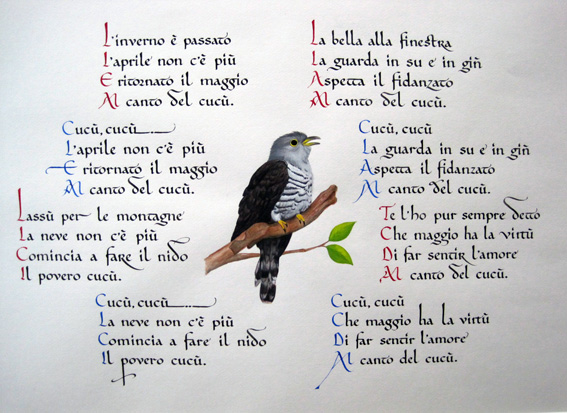 L'inverno è passato
L'aprile non c'è più
E ritornato il maggio
Al canto del cucù.
Cucù, cucù
L'aprile non c'è più
E ritornato il maggio
Al canto del cucù.
Lassù per le montagne
La neve non c'è più
Comincia a fare il nido
Il povero cucù.
Cucù, cucù
La neve non c'è più
Comincia a fare il nido
Il povero cucù.
La bella alla finestra
La guarda in su e in giù
Aspetta il fidanzato
Al canto del cucù.
Cucù, cucù
La guarda in su e in giù
Aspetta il fidanzato
Al canto del cucù.
Te l'ho pur sempre detto
Che maggio ha la virtù
Di far sentir l'amore
Al canto del cucù.
Cucù, cucù
Che maggio ha la virtù
Di far sentir l'amore
Al canto del cucù.